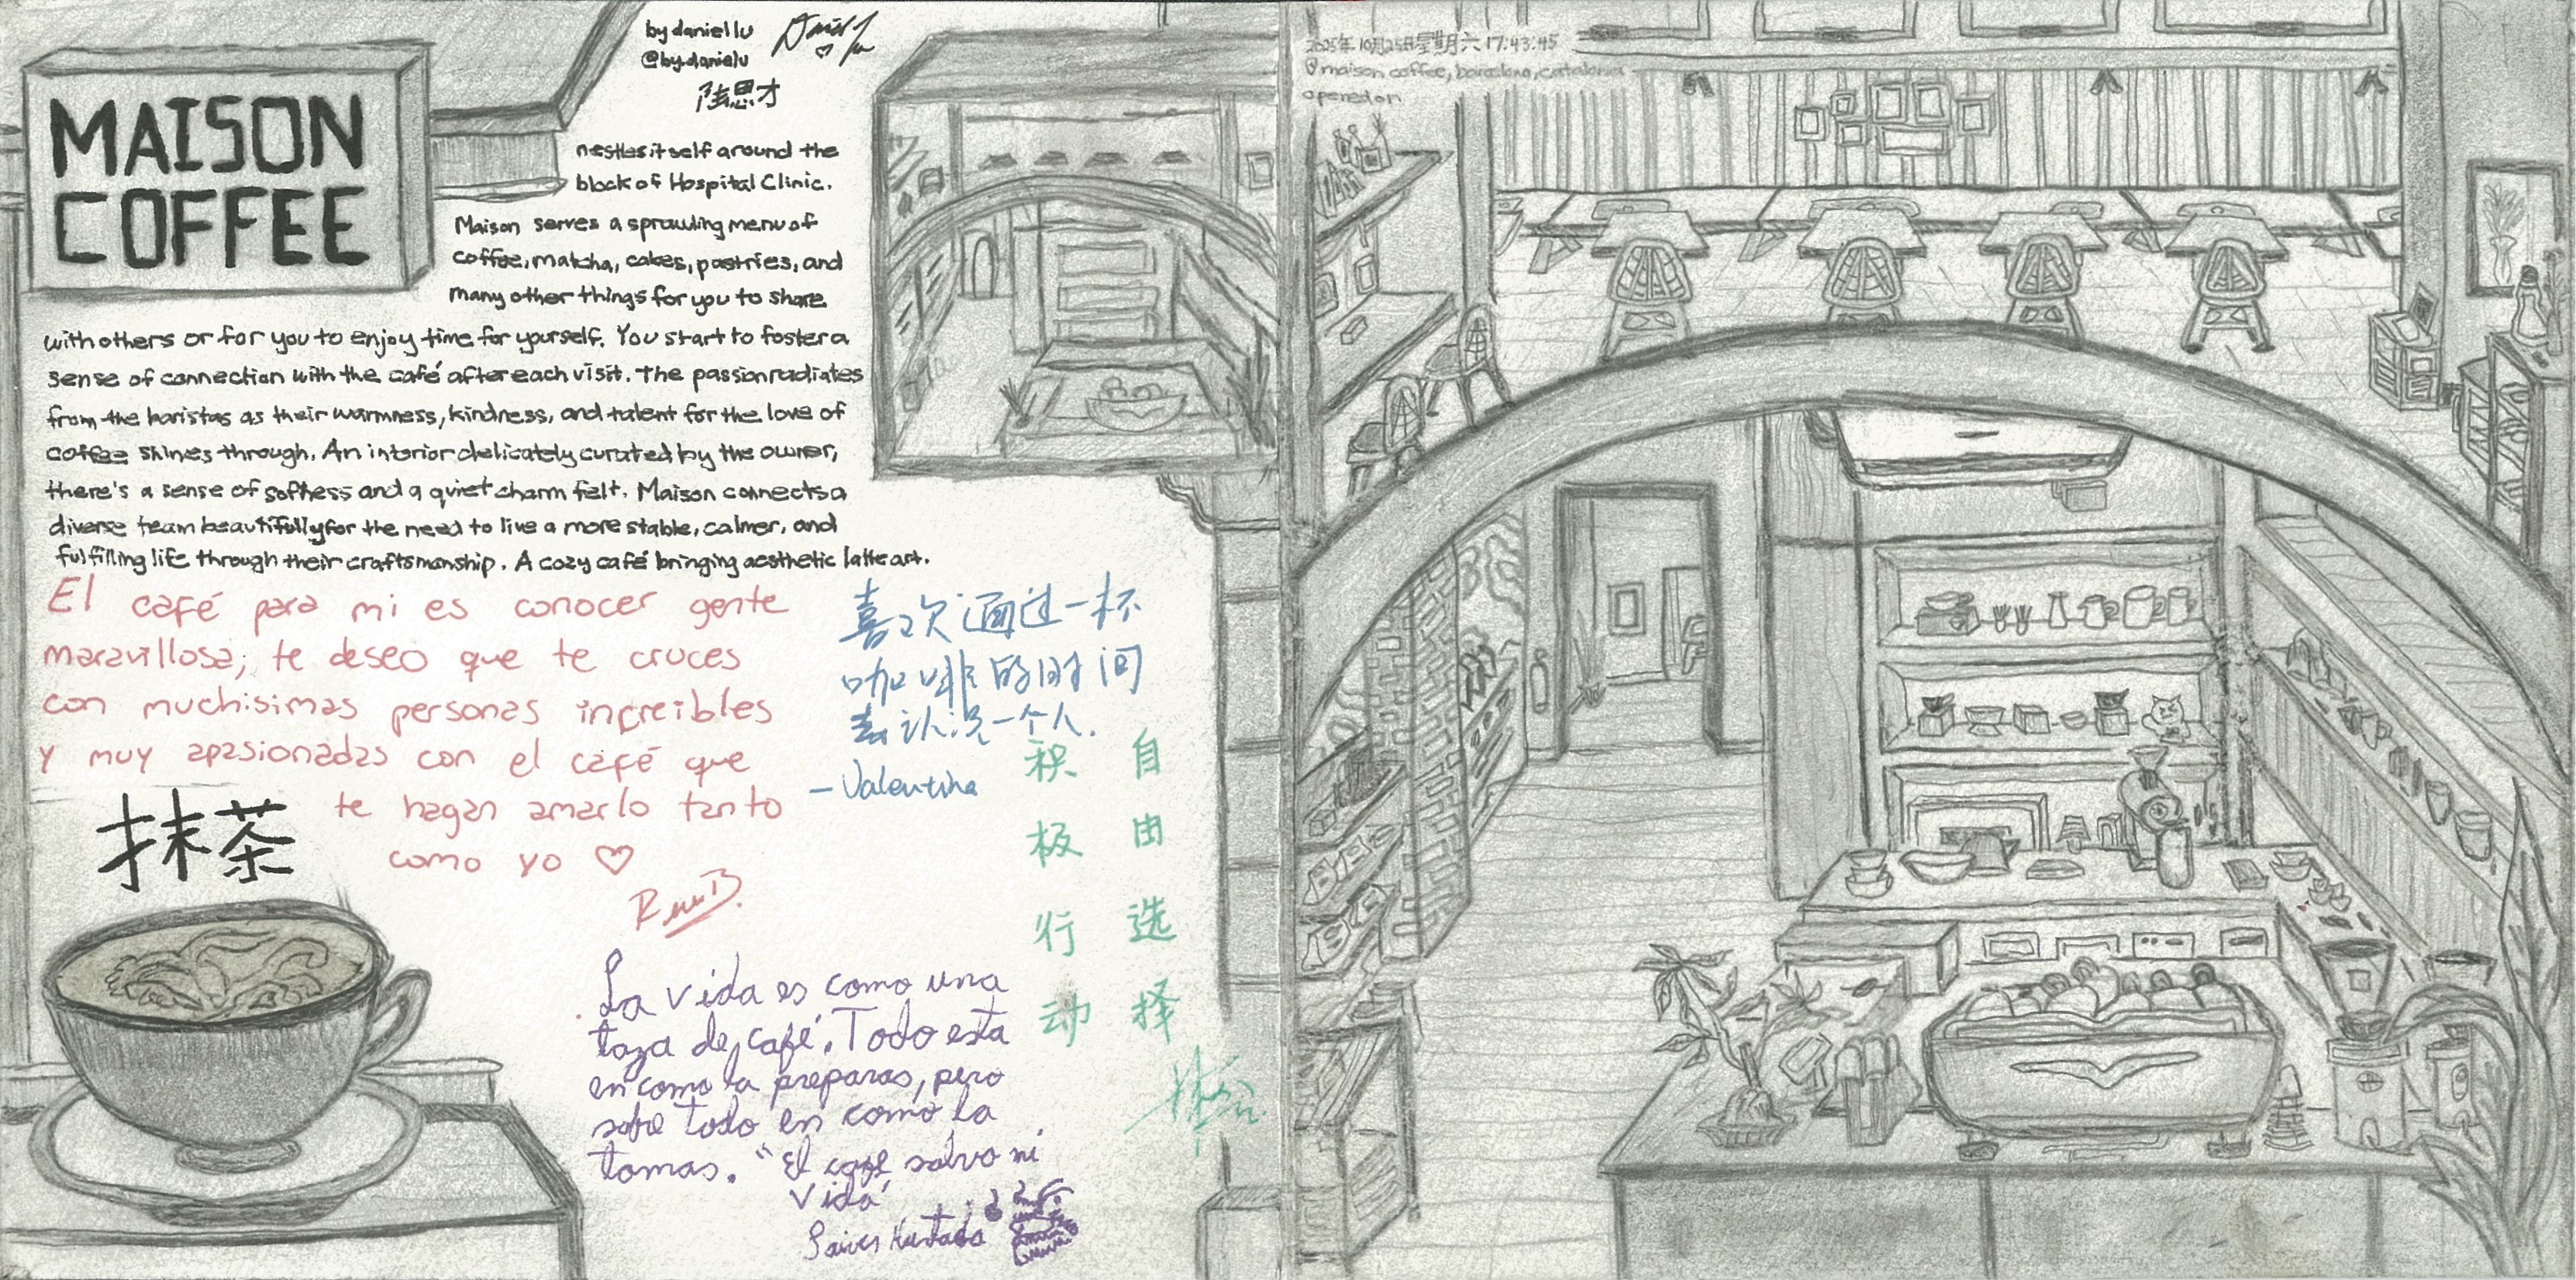 MAISON
COFFEE
by daniel lu
@by.danielu
陆思才
nestles itself around the
block of Hospital Clinic.
Maison serves a sprawling menu of
coffee, matcha, cakes, pastries, and
many other things for you to share
with others or for you to enjoy time for yourself. You start to foster a
sense of connection with the café after each visit. The passion radiates
from the baristas as their warmness, kindness, and talent for the love of
coffee shines through. An interior delicately curated by the owner,
there's a sense of softness and a quiet charm felt. Maison connects a
diverse team beautifully for the need to live a more stable, calmer, and
fulfilling life through their craftsmanship. A cozy café bringing aesthetic latte art.
El café para mi es conocer gente
maravillosa, te deseo que te cruces
con muchisimas personas increibles
y muy apasionadas con el café que
te hagan amarlo tanto
como yo ♡
喜欢通过一杯
咖啡的时间
去认识一个人.
— Valentina
自由选择
积极行动
抹茶
La vida es como una
taza de café. Todo esta
en como la preparas, pero
sobre todo en como la
tomas. "El café salvo mi
vida"
2025年10月25日星期六 17:43:45
@maison coffee, barcelona, catalonia
opened on